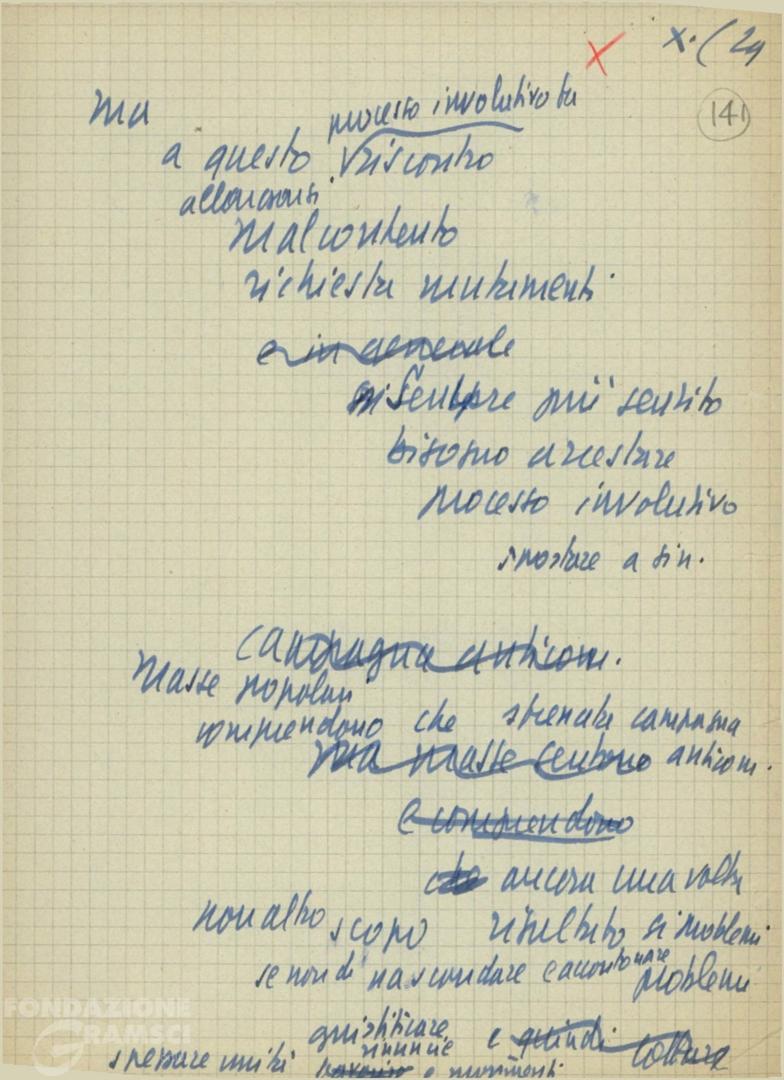 x. ( 24
141
Ma
processo involutivo
a questo riscontro
allarmanti
malcontento
richiesta mutamenti
e in generale
sempre più sentito
bisogno arrestare
processo involutivo
spostare a sin.
Campagna anticom.
Masse popolari
comprendono che sfrenata campagna
ma masse sentono anticom.
e comprendono
che ancora una volta
non altro scopo risultato problemi
se non di nascondere e accantonare problemi
giustificare e quindi
rinuncie
spezzare unità e movimenti
FONDAZIONE
GRAMSCI